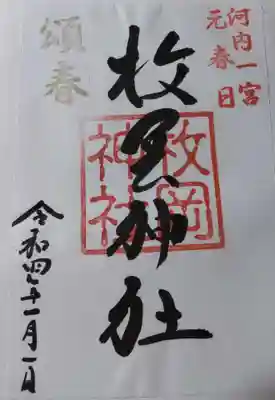 河内一宮
元春日
枚岡神社
枚岡
神社
頌春
令和四年十一月一日